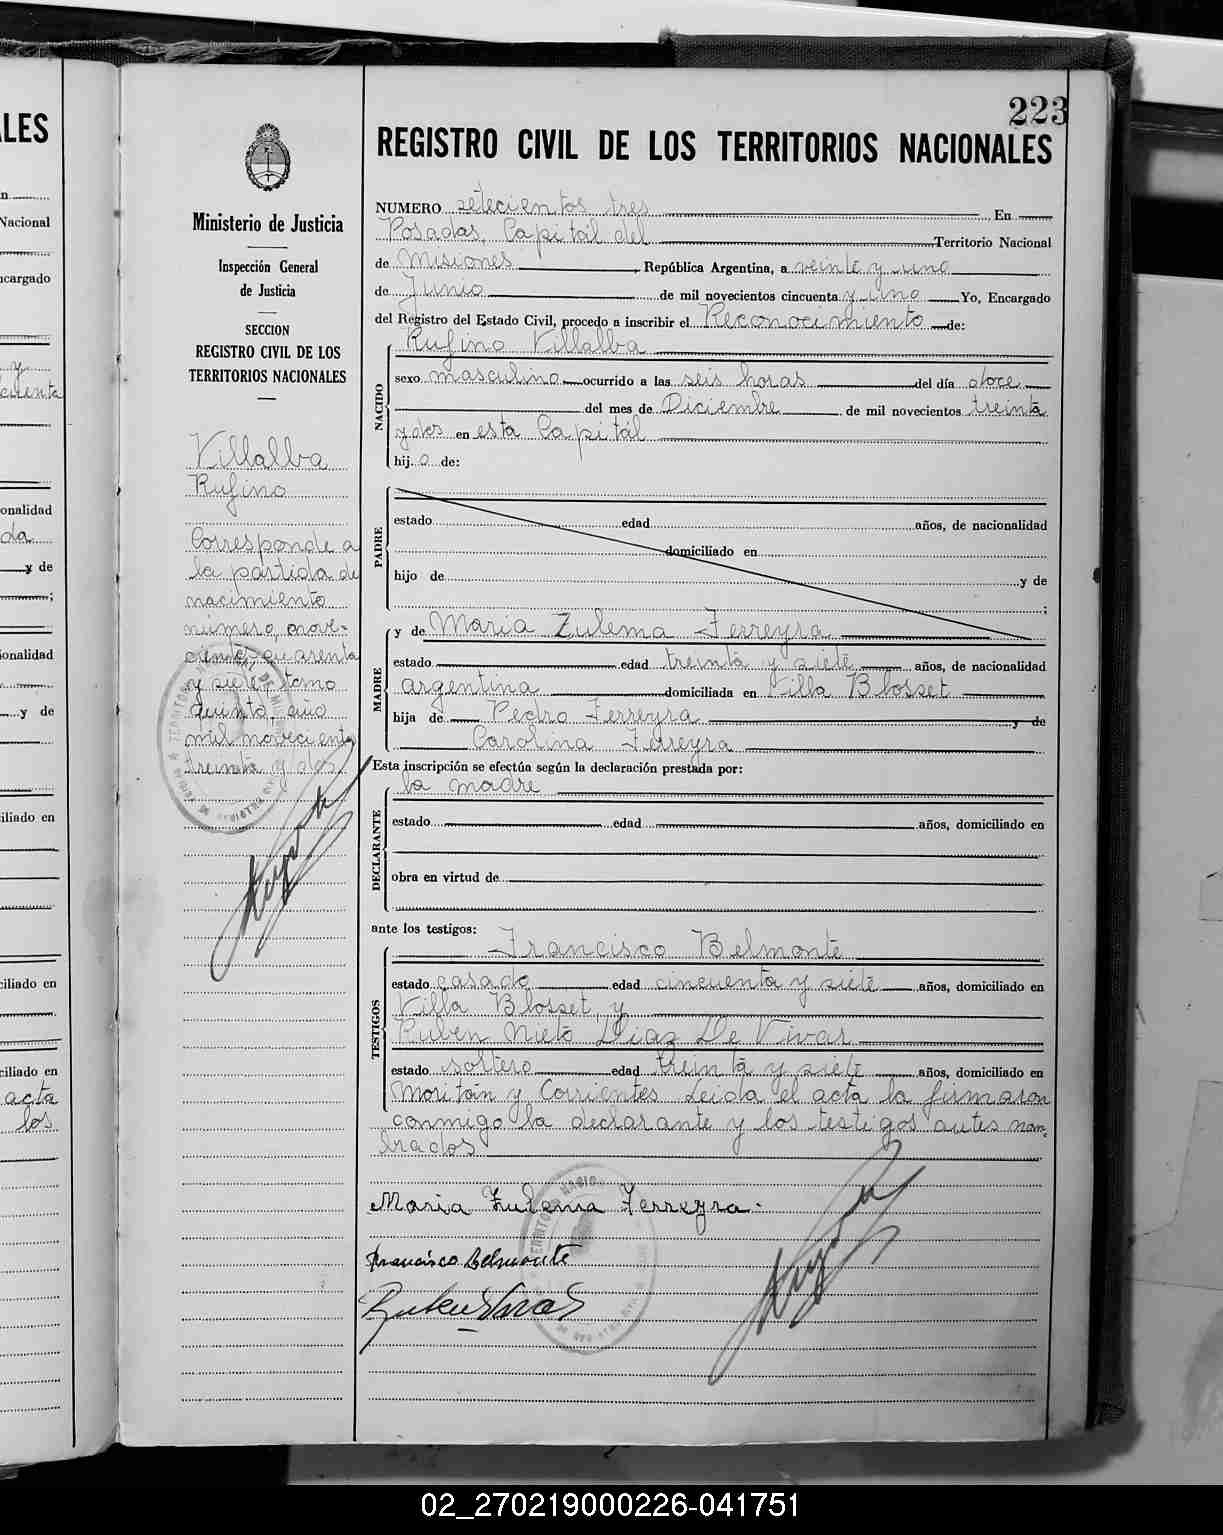 223
REGISTRO CIVIL DE LOS TERRITORIOS NACIONALES
Ministerio de Justicia
Inspección General
de Justicia
SECCION
REGISTRO CIVIL DE LOS
TERRITORIOS NACIONALES
Villalba
Rufino
Corresponde a
la partida de
nacimiento
número, nove-
cientos cuarenta
y siete, tomo
quinto, año
mil novecientos
treinta y dos
NUMERO setecientos tres En
Posadas, Capital del Territorio Nacional
de Misiones, República Argentina, a veinte y uno
de Junio de mil novecientos cincuenta y uno Yo, Encargado
del Registro del Estado Civil, procedo a inscribir el Reconocimiento de:
Rufino Villalba
NACIDO
sexo masculino ocurrido a las seis horas del día doce
del mes de Diciembre de mil novecientos treinta
y dos en esta Capital
hij o de:
PADRE
estado edad años, de nacionalidad
domiciliado en
hijo de y de
;
MADRE
y de Maria Zulema Ferreyra
estado edad treinta y siete años, de nacionalidad
argentina domiciliada en Villa Blosset
hija de Pedro Ferreyra y de
Carolina Ferreyra
Esta inscripción se efectúa según la declaración prestada por:
la madre
DECLARANTE
estado edad años, domiciliado en
obra en virtud de
ante los testigos:
Francisco Belmonte
TESTIGOS
estado casado edad cincuenta y siete años, domiciliado en
Villa Blosset, y
Ruben Nieto Diaz De Vivar
estado soltero edad treinta y siete años, domiciliado en
Moritán y Corrientes Leida el acta la firmaron
conmigo la declarante y los testigos antes nom-
brados
Maria Zulema Ferreyra.
Francisco Belmonte
ALES
n
Nacional
ncargado
y
cuenta
onalidad
da
y de
;
ionalidad
y de
iliado en
ciliado en
ciliado en
acta
los
02_270219000226-041751